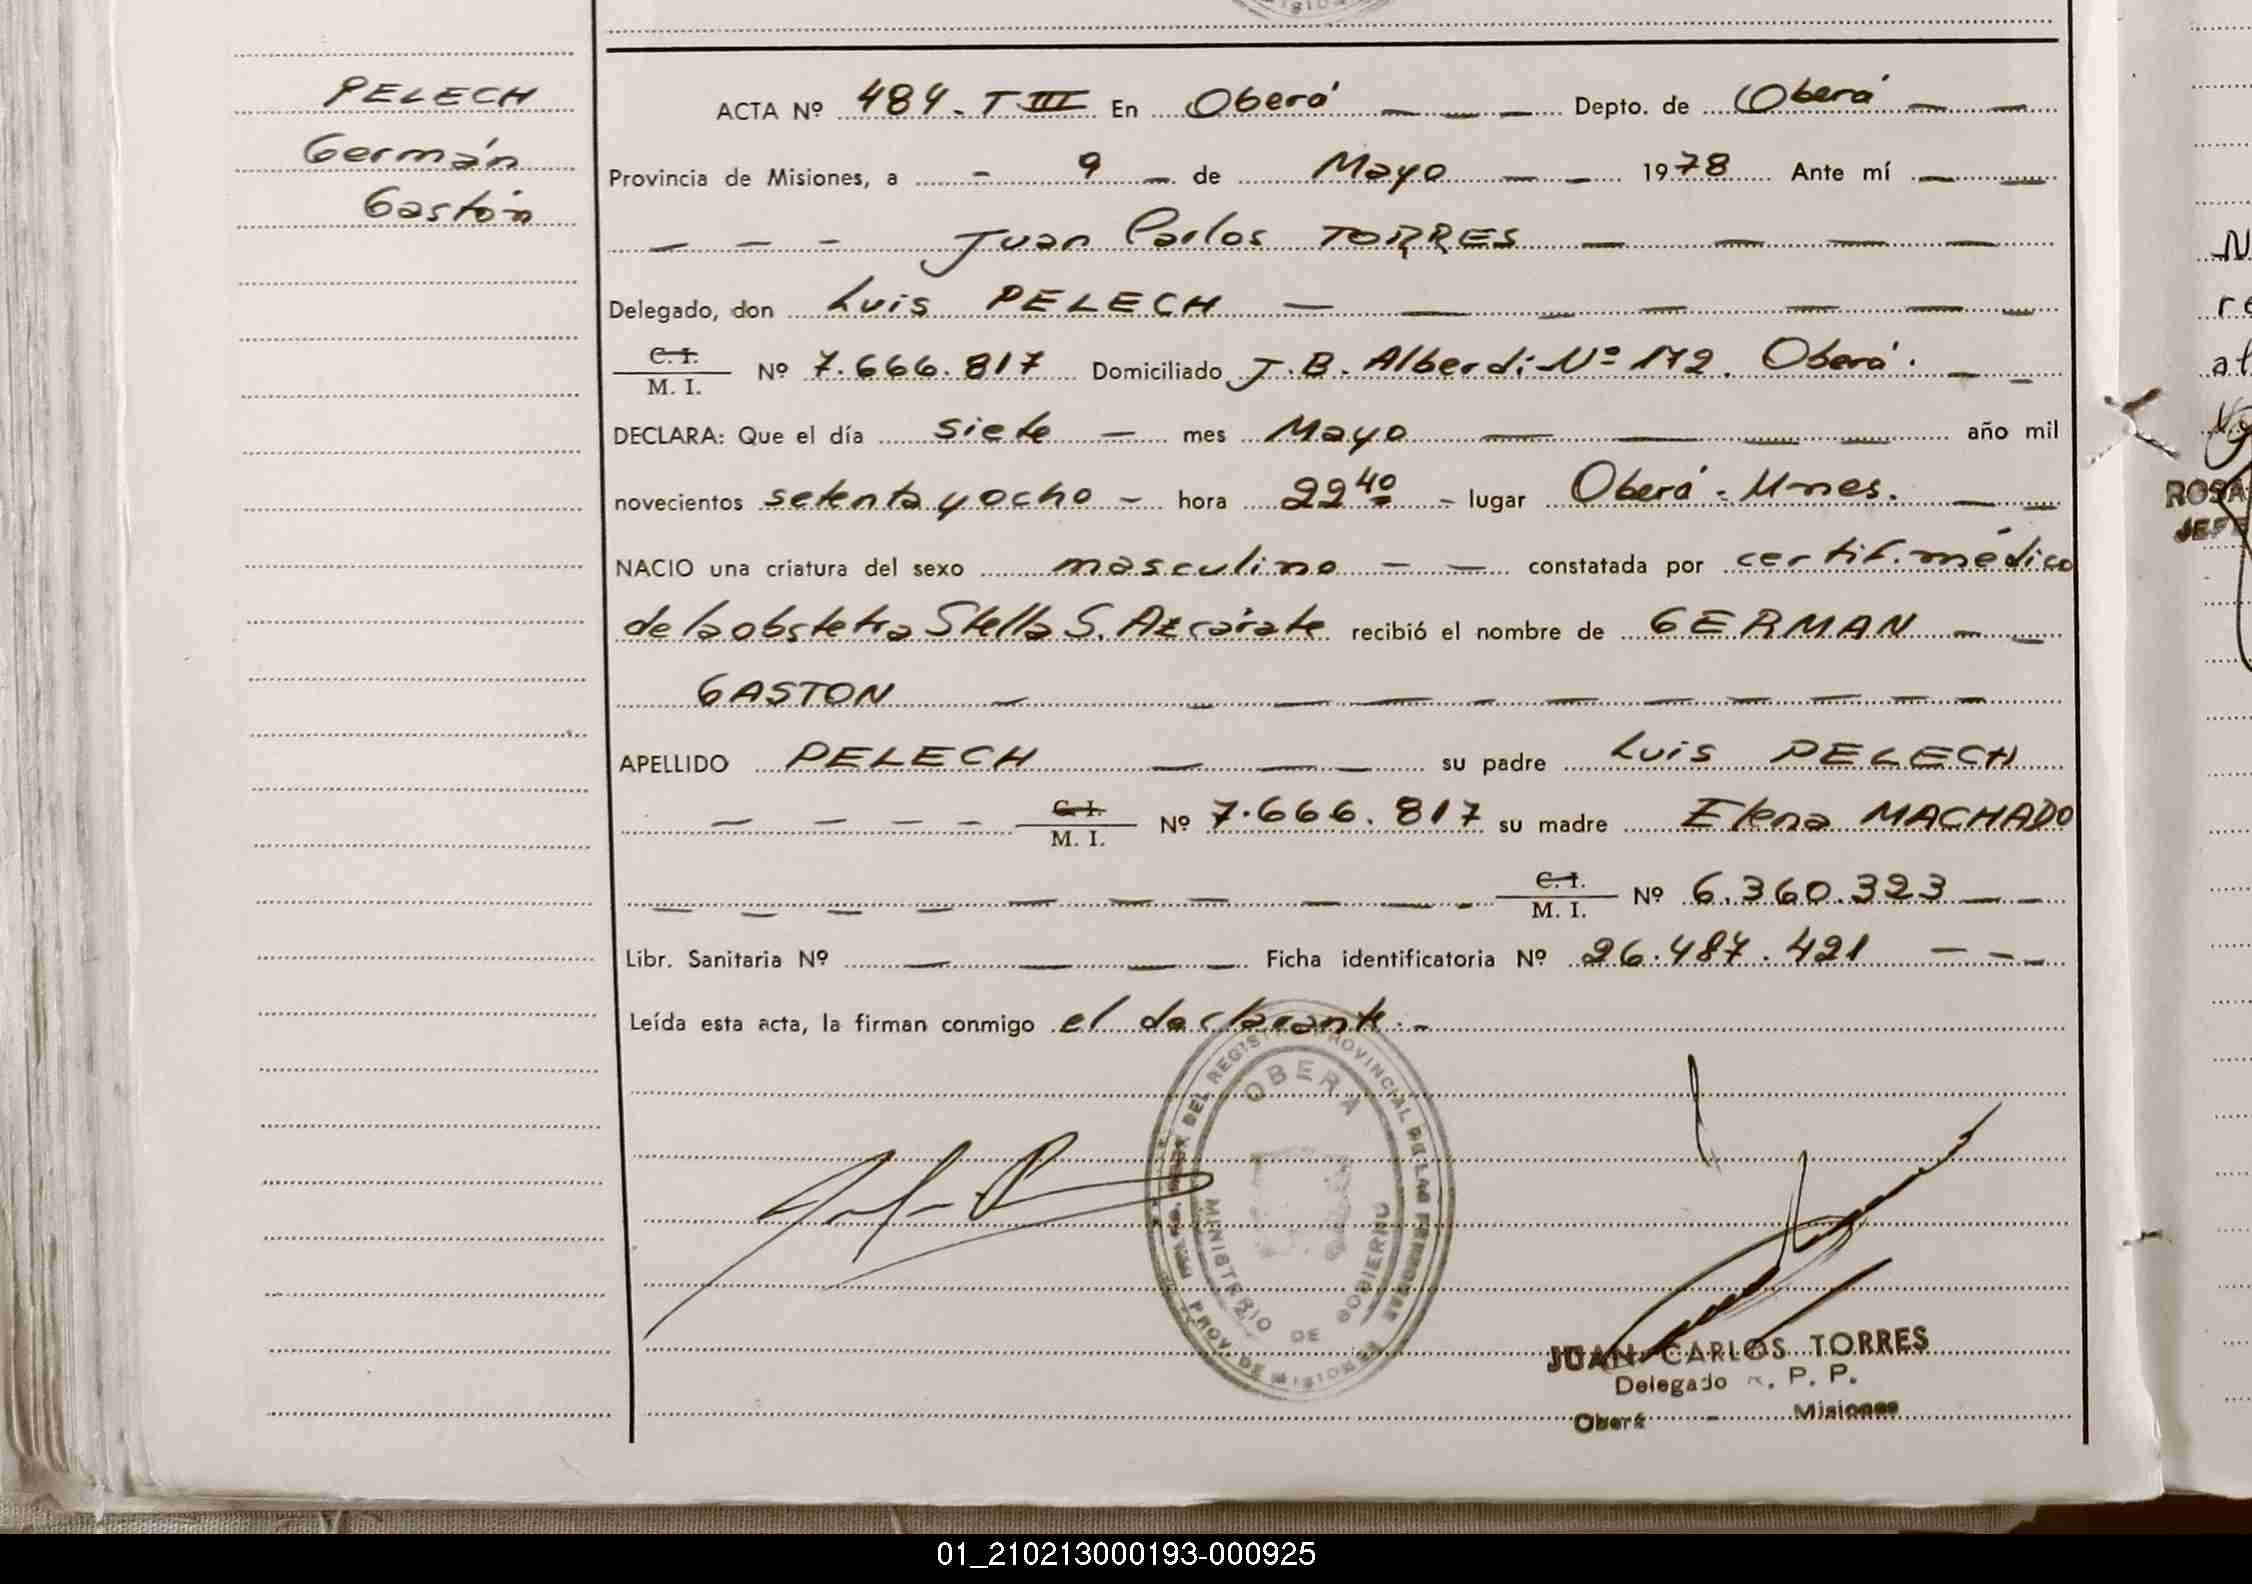 PELECH
Germán
Gastón
ACTA Nº 484 - T III En Oberá Depto. de Oberá
Provincia de Misiones, a 9 de Mayo 1978 Ante mí
Juan Carlos TORRES
Delegado, don Luis PELECH
C. I.
M. I. Nº 7.666.817 Domiciliado J. B. Alberdi Nº 172. Oberá.
DECLARA: Que el día siete mes Mayo año mil
novecientos setenta y ocho hora 22 40 lugar Oberá - Mnes.
NACIO una criatura del sexo masculino constatada por certif. médico
de la obstetra Stella S. Azcárate recibió el nombre de GERMAN
GASTON
APELLIDO PELECH su padre Luis PELECH
C. I.
M. I. Nº 7.666.817 su madre Elena MACHADO
C. I.
M. I. Nº 6.360.323
Libr. Sanitaria Nº Ficha identificatoria Nº 26.487.421
Leída esta acta, la firman conmigo el declarante. -
DEL REGISTRO PROVINCIAL DE LAS PERSONAS
OBERA
MINISTERIO DE GOBIERNO
PROV. DE MISIONES
JUAN CARLOS TORRES
Delegado R. P. P.
Oberá - Misiones
ROSA
JEFE
01_210213000193-000925